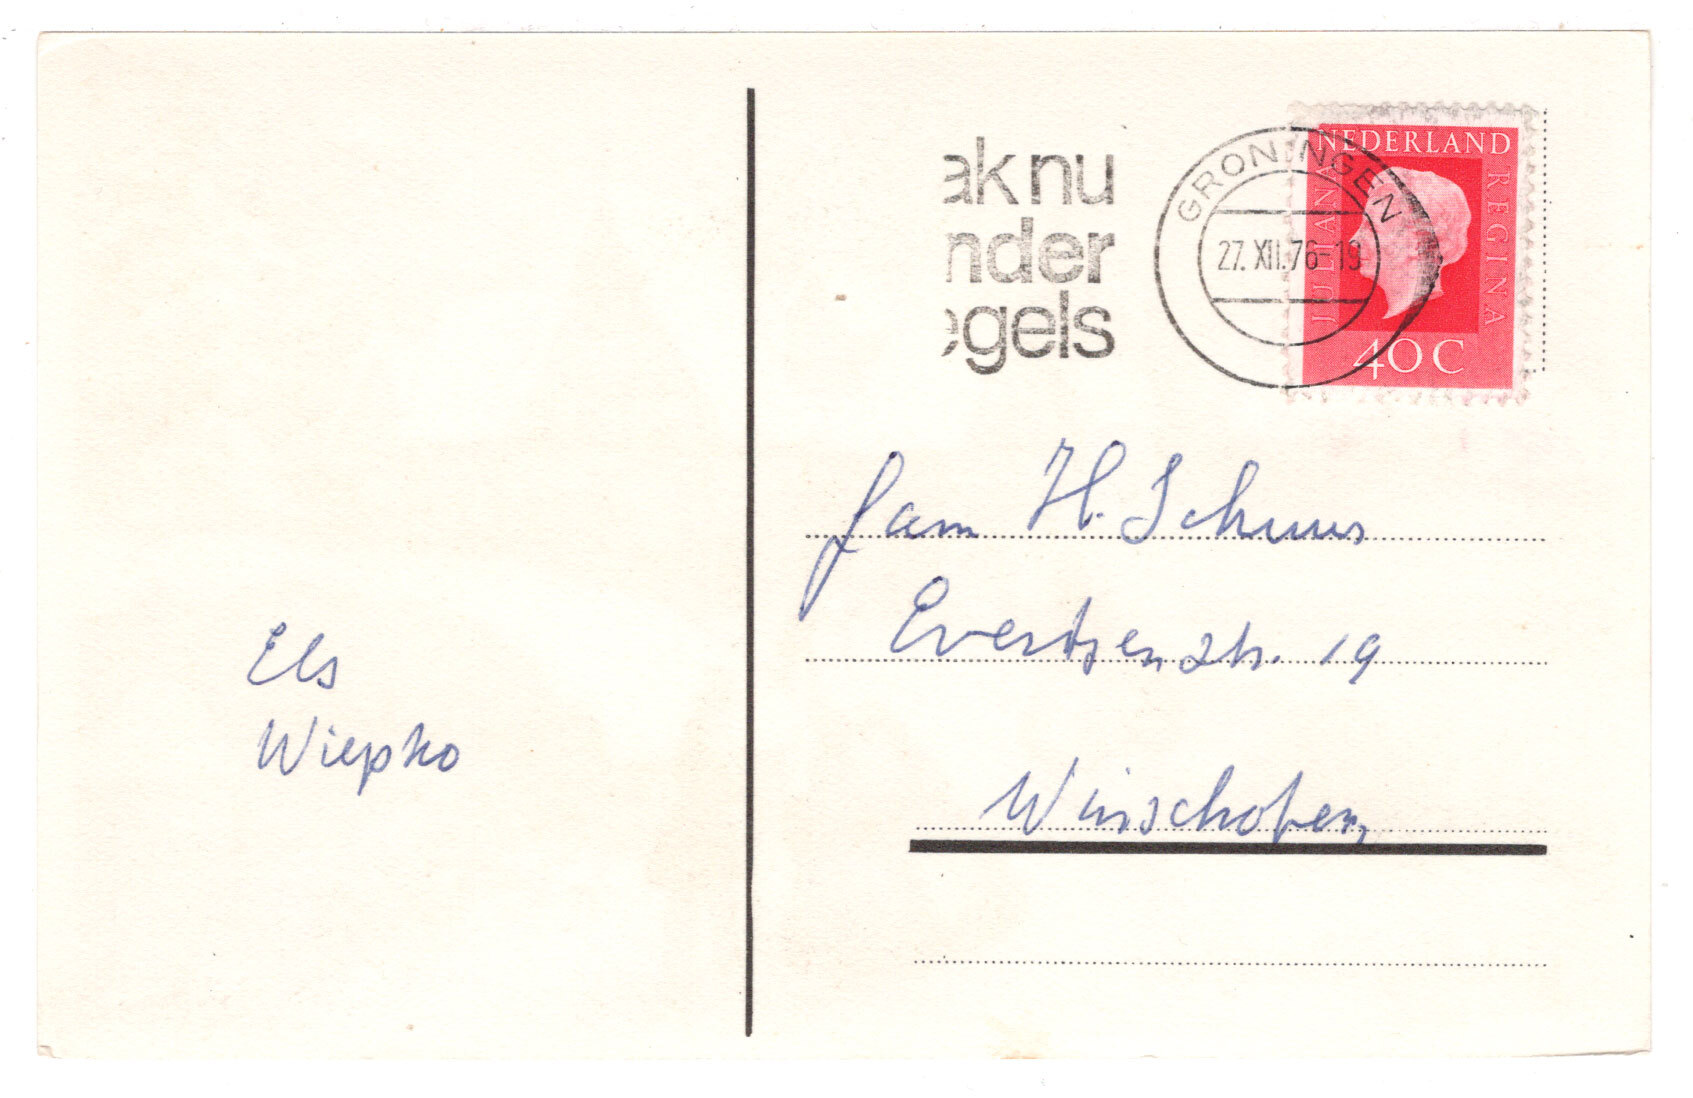 ak nu
nder
egels
GRONINGEN
27. XII. 76-19
NEDERLAND
JULIANA
REGINA
40 C
fam H. Schuur
Evertsenstr. 19
Winschoten
Els
Wiepko